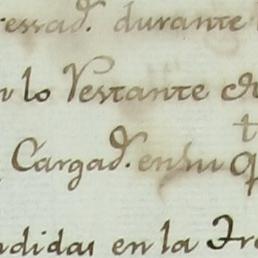 essad.º durante
lo Restante
Cargad.º en su
didas en la